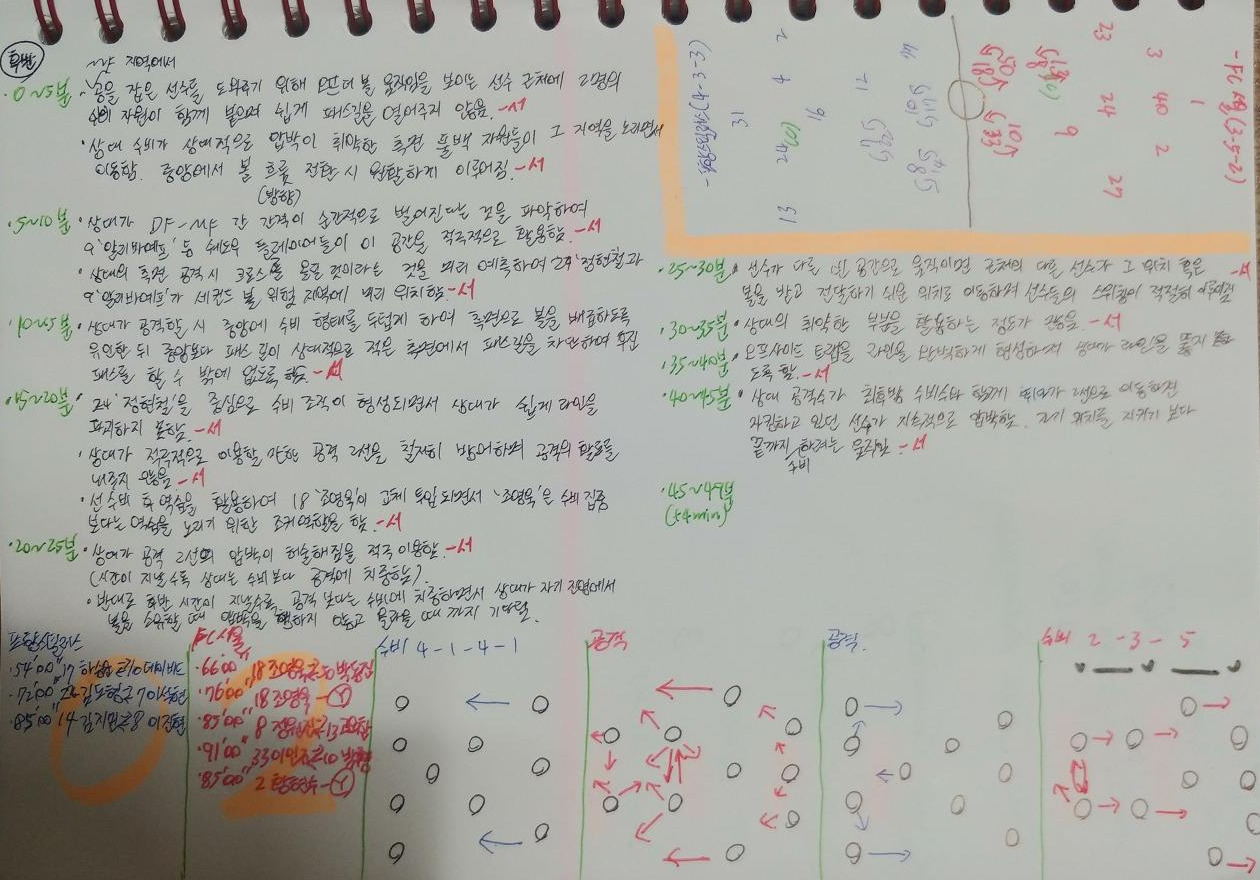 후반
MF 지역에서
· 0~5분 · 공을 잡은 선수를 도와주기 위해 언더 볼 움직임을 보이는 선수 근처에 2명의
수비 자원이 함께 붙으며 쉽게 패스길을 열어주지 않음. -서
· 상대 수비가 상대적으로 압박이 취약한 측면 풀백 자원들이 그 지역을 노리면서
이동함. 중앙에서 볼 흐름 전환 시 원활하게 이루어짐. -서
(방향)
· 5~10분 · 상대가 DF-MF 간 간격이 순간적으로 벌어진다는 것을 파악하여
9 '알리바예프' 등 섀도우 플레이어들이 이 공간을 적극적으로 활용함. -서
· 상대의 측면 공격 시 크로스를 올릴 것이라는 것을 미리 예측하여 24 '정현철'과
9 '알리바예프'가 세컨드 볼 위험 지역에 미리 위치함. -서
· 10~15분 · 상대가 공격할 시 중앙에 수비 형태를 두텁게 하여 측면으로 볼을 배급하도록
유인한 뒤 중앙보다 패스 길이 상대적으로 적은 측면에서 패스길을 차단하여 후진
패스를 할 수 밖에 없도록 함. -서
· 15~20분 · 24 '정현철'을 중심으로 수비 조직이 형성되면서 상대가 쉽게 라인을
파괴하지 못함. -서
· 상대가 적극적으로 이용할 만한 공격 2선을 철저히 방어하며 공격의 활로를
내주지 않음 -서
· 선수비 후 역습을 활용하여 18 '조영욱'이 교체 투입되면서 '조영욱'은 수비 집중
보다는 역습을 노리기 위한 조커 역할을 함. -서
· 20~25분 · 상대가 공격 2선의 압박이 허술해짐을 적극 이용함. -서
(시간이 지날수록 상대는 수비보다 공격에 치중함).
· 반대로 후반 시간이 지날수록 공격 보다는 수비에 치중하면서 상대가 자기 진영에서
볼을 소유할 때 압박을 행하지 않고 올라올 때 까지 기다림.
- FC서울 (3-5-2)
1
3 40 2
23 24 27
9
- 포항스틸러스 (4-3-3)
31
2 4 24 13
16
· 25~30분 · 선수가 다른 빈 공간으로 움직이면 근처의 다른 선수가 그 위치 혹은
볼을 받고 전달하기 쉬운 위치로 이동하며 선수들의 스위칭이 적절히 이루어짐 -서
· 30~35분 · 상대의 취약한 부분을 활용하는 정도가 많음. -서
· 35~40분 · 오프사이드 트랩을 라인을 완벽하게 형성하여 상대가 라인을 뚫지 못하
도록 함. -서
· 40~45분 · 상대 공격수가 최후방 수비수와 함께 뒤에 이동하면
마킹하고 있던 선수가 지속적으로 압박함. 자기 위치를 지키기 보다
끝까지 하려는 움직임 -서
수비
· 45~49분
(+4min)
포항스틸러스
· 54'00" 17 하승운 10 데이비드
· 72'00" 26 김도형 7 이석현
· 85'00" 14 8 이진현
FC서울
· 66'00" 18 조영욱 10 박동진
· 76'00" 18 조영욱 - Y
· 85'00" 8 정원진 13 고요한
· 91'00" 33 이인규 10 박주영
· 85'00" 2 황현수 - Y
수비 4-1-4-1
공격
공격.
수비 2-3-5